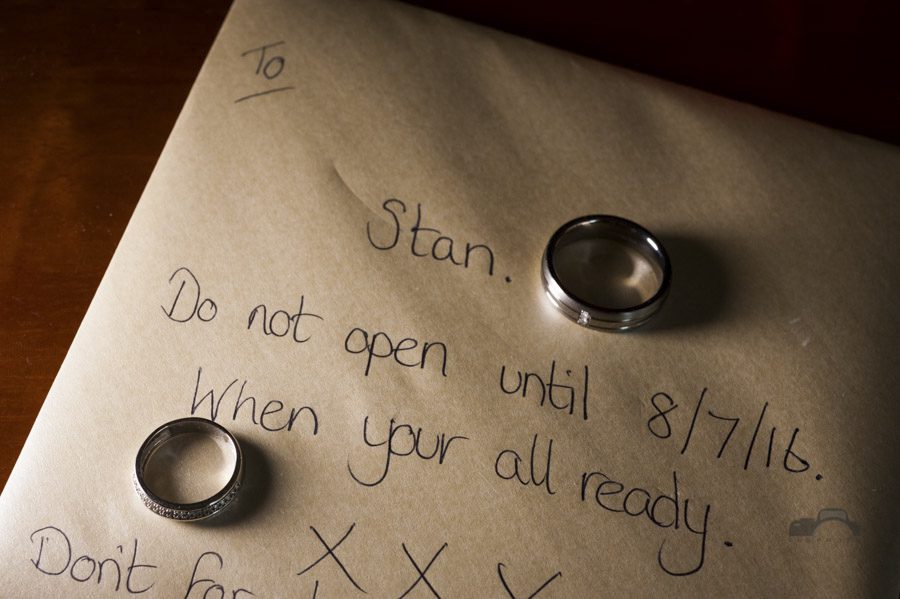 To
Stan.
Do not open until 8/7/16.
When your all ready.
X X X
Don't